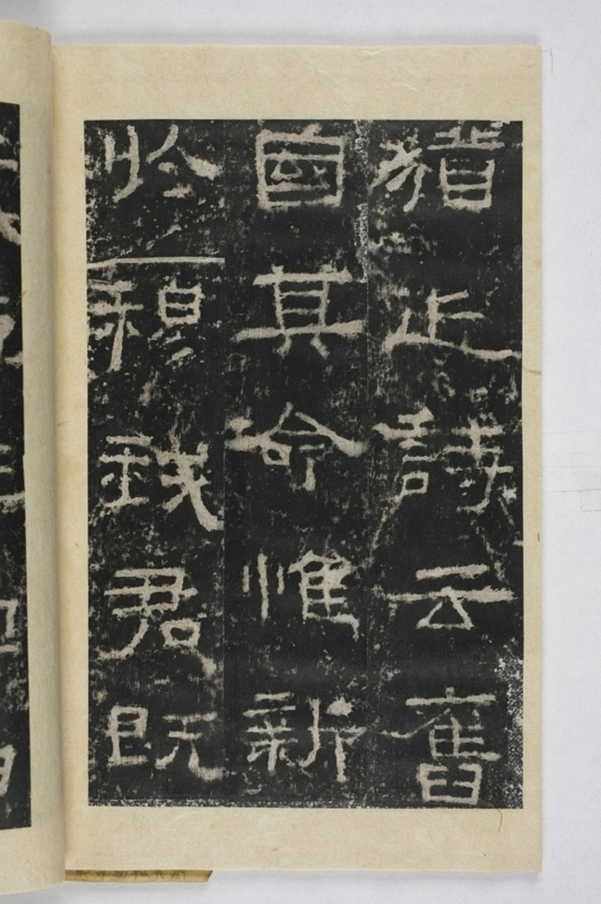 猶近詩云舊
國其命惟新
於穆我君既